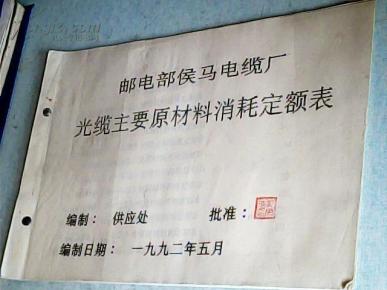 邮电部侯马电缆厂
光缆主要原材料消耗定额表
编制： 供应处 批准：
编制日期： 一九九二年五月